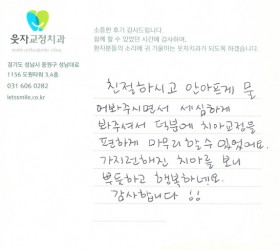 웃자교정치과
소중한 후기 감사드립니다.
함께 할 수 있었던 시간에 감사하며,
환자분들의 소리에 귀 기울이는 웃자치과가 되도록 하겠습니다.
경기도 성남시 중원구 성남대로
1156 도원타워 3,4층
031 606 0282
letssmile.co.kr
친정하시고 안아프게 물
어봐주시면서 세심하게
봐주셔서 덕분에 치아교정을
편하게 마무리 할 수 있었어요.
가지런해진 치아를 보니
뿌듯하고 행복하네요.
감사합니다 !!